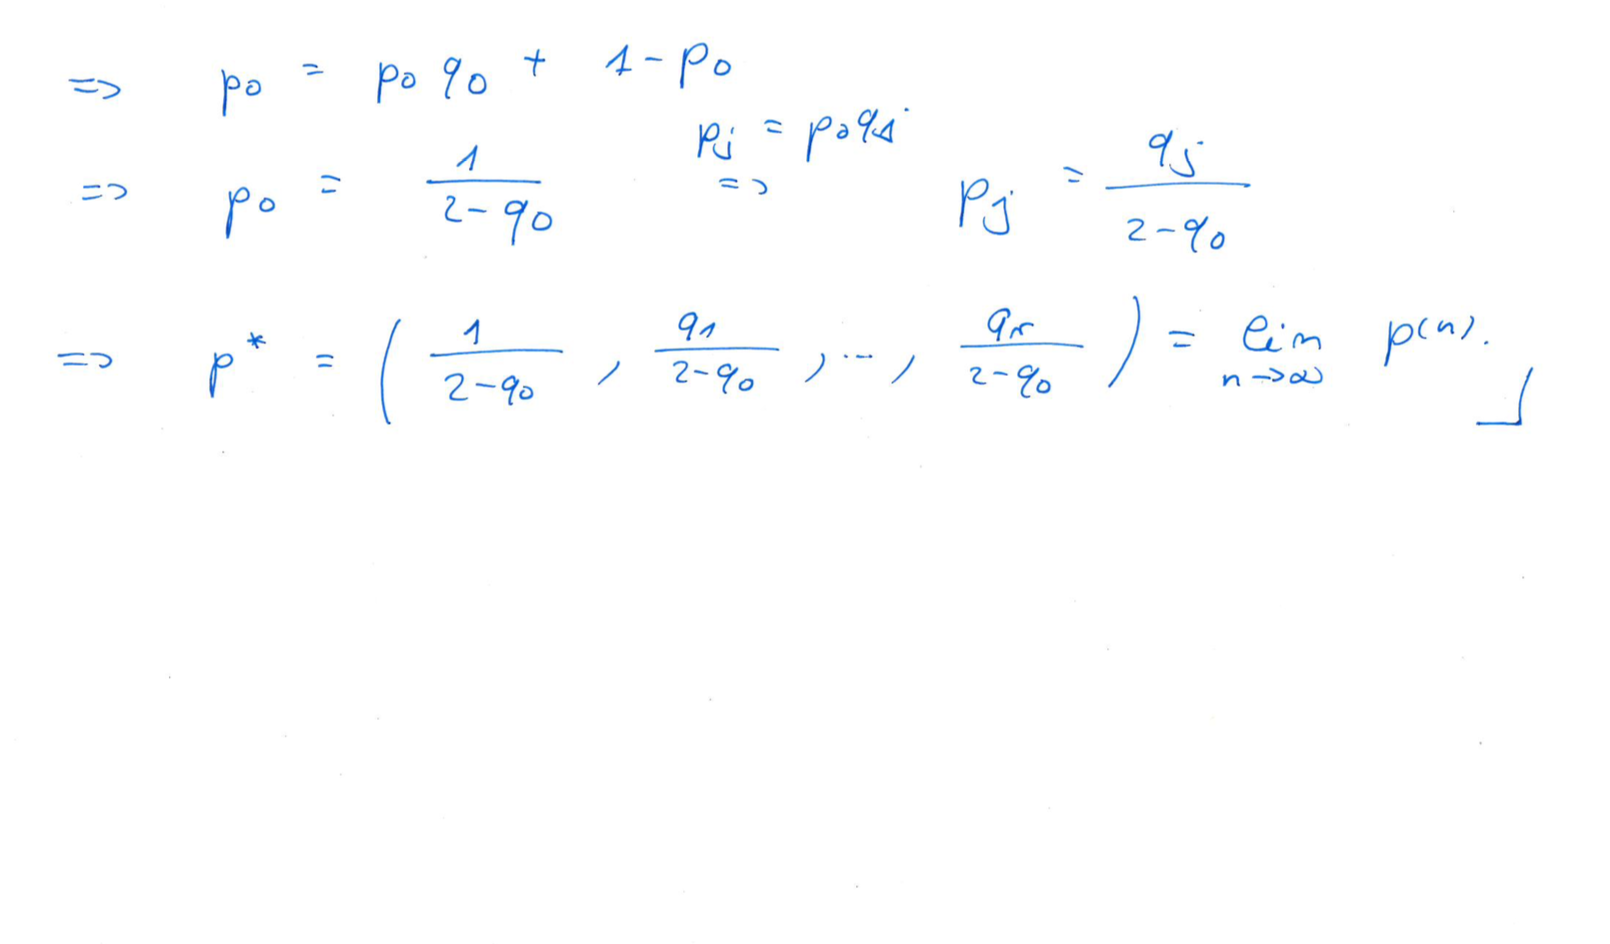 => p₀ = p₀ q₀ + 1 - p₀
=> p₀ = 1/(2-q₀) =>^{pⱼ = p₀qⱼ} pⱼ = qⱼ/(2-q₀)
=> p* = ( 1/(2-q₀) , q₁/(2-q₀) , ... , qᵣ/(2-q₀) ) = lim_{n→∞} p(n). ⌋